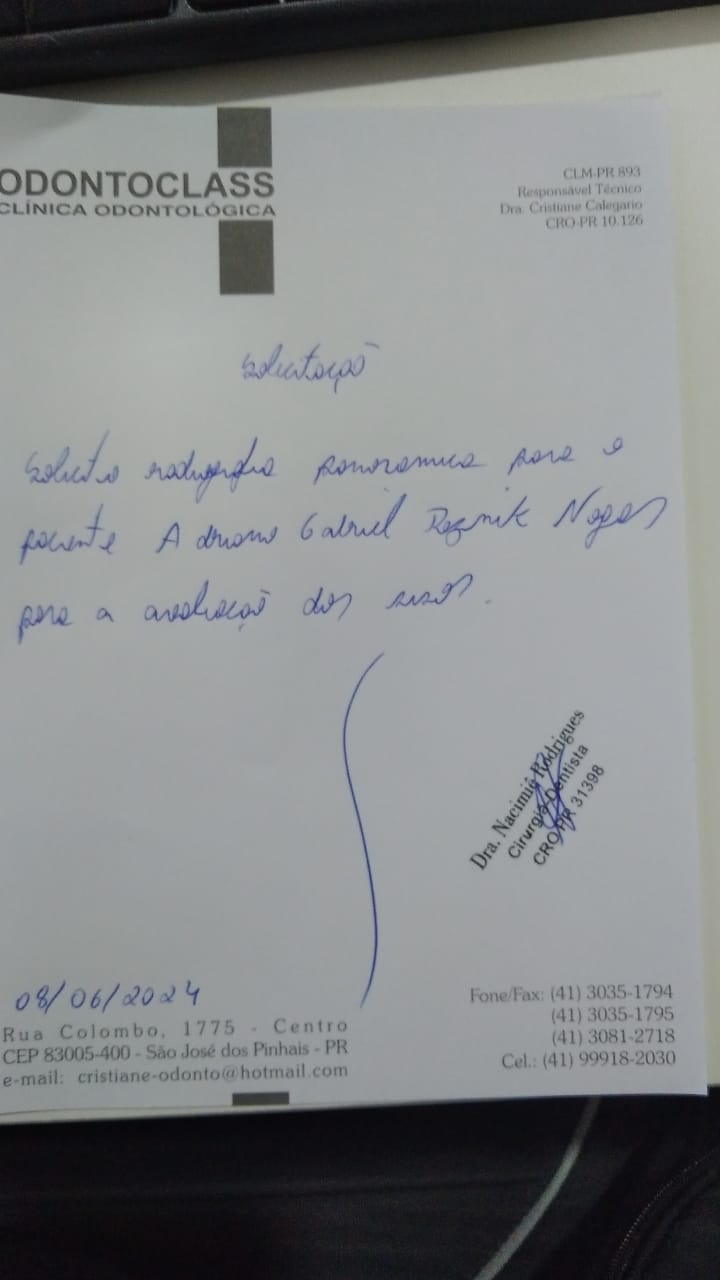 ODONTOCLASS
CLÍNICA ODONTOLÓGICA
CLM-PR 893
Responsável Técnico
Dra. Cristiane Calegario
CRO-PR 10.126
Solicitação
Solicito radiografia panoramica para o
paciente Adriano Gabriel Reznik
para a avaliação dos sisos.
Dra. Nacimiê Rodrigues
Cirurgiã Dentista
CRO-PR 31398
08/06/2024
Rua Colombo, 1775 - Centro
CEP 83005-400 - São José dos Pinhais - PR
e-mail: cristiane-odonto@hotmail.com
Fone/Fax: (41) 3035-1794
(41) 3035-1795
(41) 3081-2718
Cel.: (41) 99918-2030